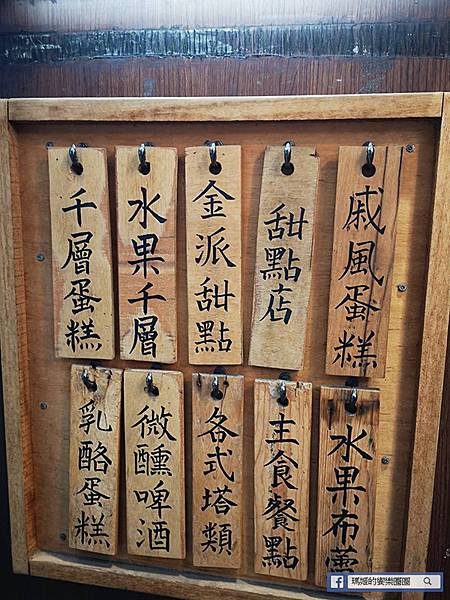 戚風蛋糕
甜點店
金派甜點
水果千層
千層蛋糕
水果布蕾
主食餐點
各式塔類
微醺啤酒
乳酪蛋糕
瑪姬的饗樂團團